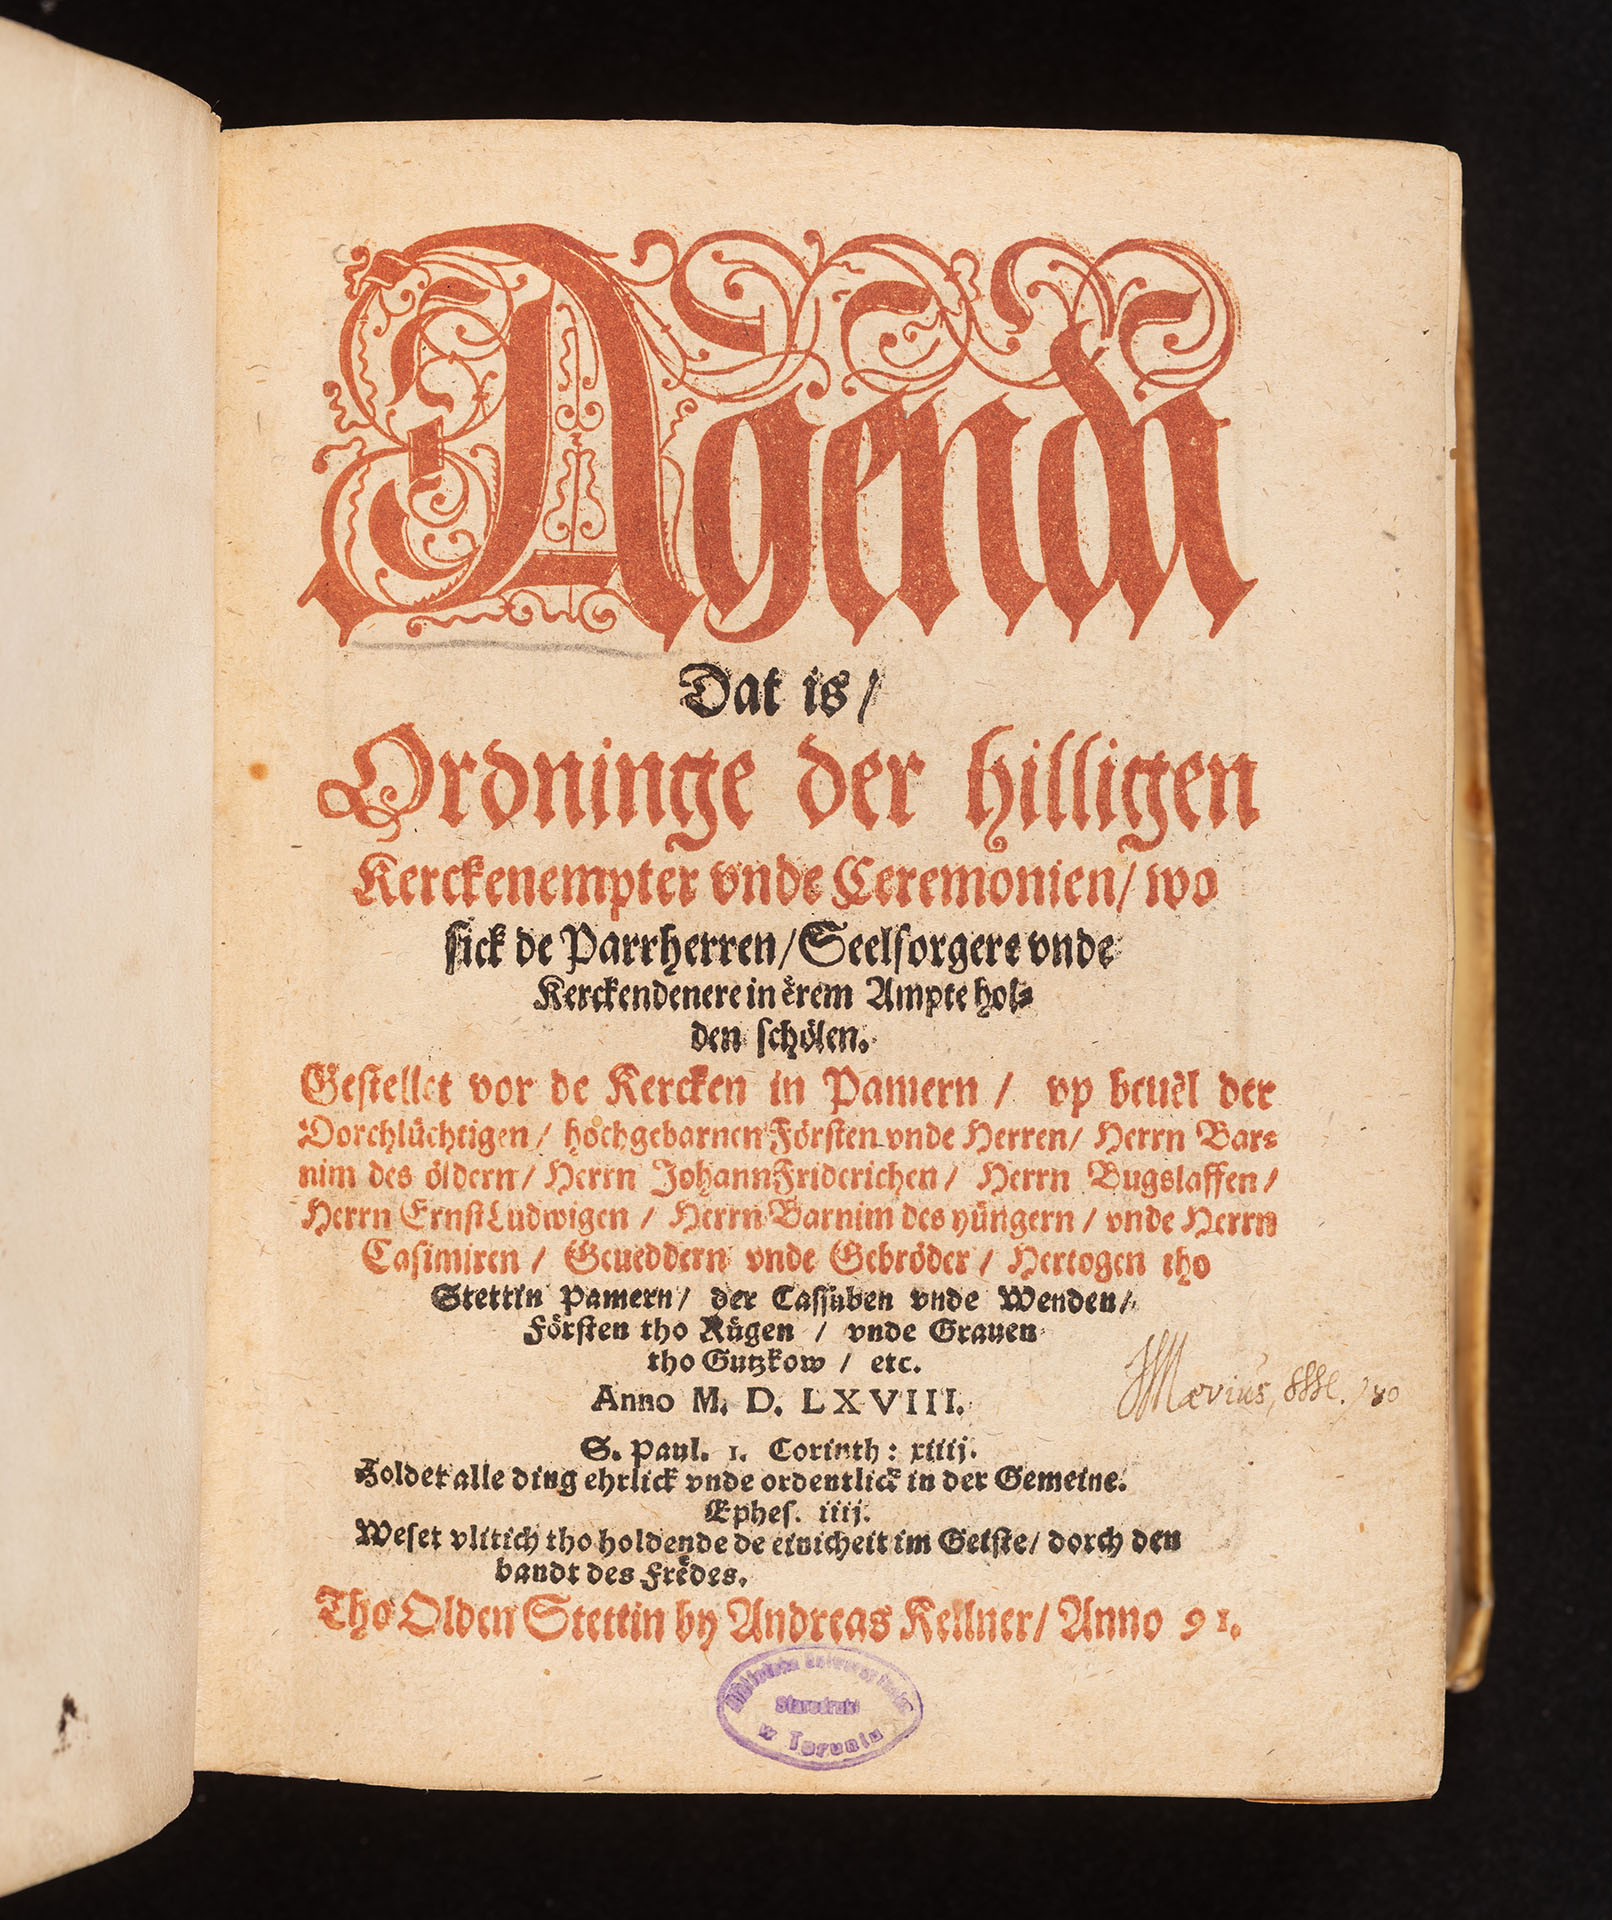 Agenda
Dat is/
Ordninge der hilligen
Kerckenempter vnde Ceremonien/ wo
sick de Parrherren/ Seelsorgere vnde
Kerckendenere in erem Ampte hol⸗
den schölen.
Gestellet vor de Kercken in Pamern/ vp beuel der
Dorchlüchtigen/ hochgebarnen Försten vnde Herren/ Herrn Bar⸗
nim des öldern/ Herrn Johann Friderichen/ Herrn Bugslaffen/
Herrn Ernst Ludwigen/ Herrn Barnim des yüngern/ vnde Herrn
Casimiren/ Geueddern vnde Gebröder/ Hertogen tho
Stettin Pamern/ der Cassuben vnde Wenden/
Försten tho Rügen/ vnde Grauen
tho Gutzkow/ etc.
Anno M. D. LXVIII.
Mævius,
S. Paul. 1. Corinth: xiiij.
Holdet alle ding ehrlick vnde ordentlick in der Gemeine.
Ephes. iiij.
Weset vlitich tho holdende de einicheit im Geiste/ dorch den
bandt des Fredes.
Tho Olden Stettin by Andreas Kellner/ Anno 91.
Biblioteka
Starodruki
w Toruniu